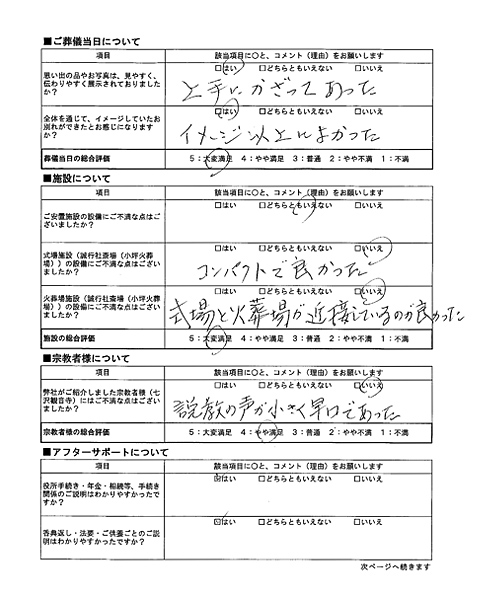 ■ご葬儀当日について
項目 該当項目に○と、コメント（理由）をお願いします
思い出の品やお写真は、見やすく、 □はい □どちらともいえない □いいえ
伝わりやすく展示されておりました
か？
上手にかざってあった
全体を通じて、イメージしていたお □はい □どちらともいえない □いいえ
別れができたとお感じになります
か？
イメージ以上によかった
葬儀当日の総合評価 5：大変満足 4：やや満足 3：普通 2：やや不満 1：不満
■施設について
項目 該当項目に○と、コメント（理由）をお願いします
□はい □どちらともいえない □いいえ
ご安置施設の設備にご不満な点はご
ざいましたか？
□はい □どちらともいえない □いいえ
式場施設（誠行社斎場（小坪火葬
場））の設備にご不満な点はござい
ましたか？
コンパクトで良かった
□はい □どちらともいえない □いいえ
火葬場施設（誠行社斎場（小坪火葬
場））の設備にご不満な点はござい
ましたか？
式場と火葬場が近接しているのが良かった
施設の総合評価 5：大変満足 4：やや満足 3：普通 2：やや不満 1：不満
■宗教者様について
項目 該当項目に○と、コメント（理由）をお願いします
□はい □どちらともいえない □いいえ
弊社がご紹介しました宗教者様（七
沢観音寺）にはご不満な点はござい
ましたか？
説教の声が小さく早口であった
宗教者様の総合評価 5：大変満足 4：やや満足 3：普通 2：やや不満 1：不満
■アフターサポートについて
項目 該当項目に○と、コメント（理由）をお願いします
☒はい □どちらともいえない □いいえ
役所手続き・年金・相続等、手続き
関係のご説明はわかりやすかったで
すか？
☒はい □どちらともいえない □いいえ
香典返し・法要・ご供養ごとのご説
明はわかりやすかったですか？
次ページへ続きます